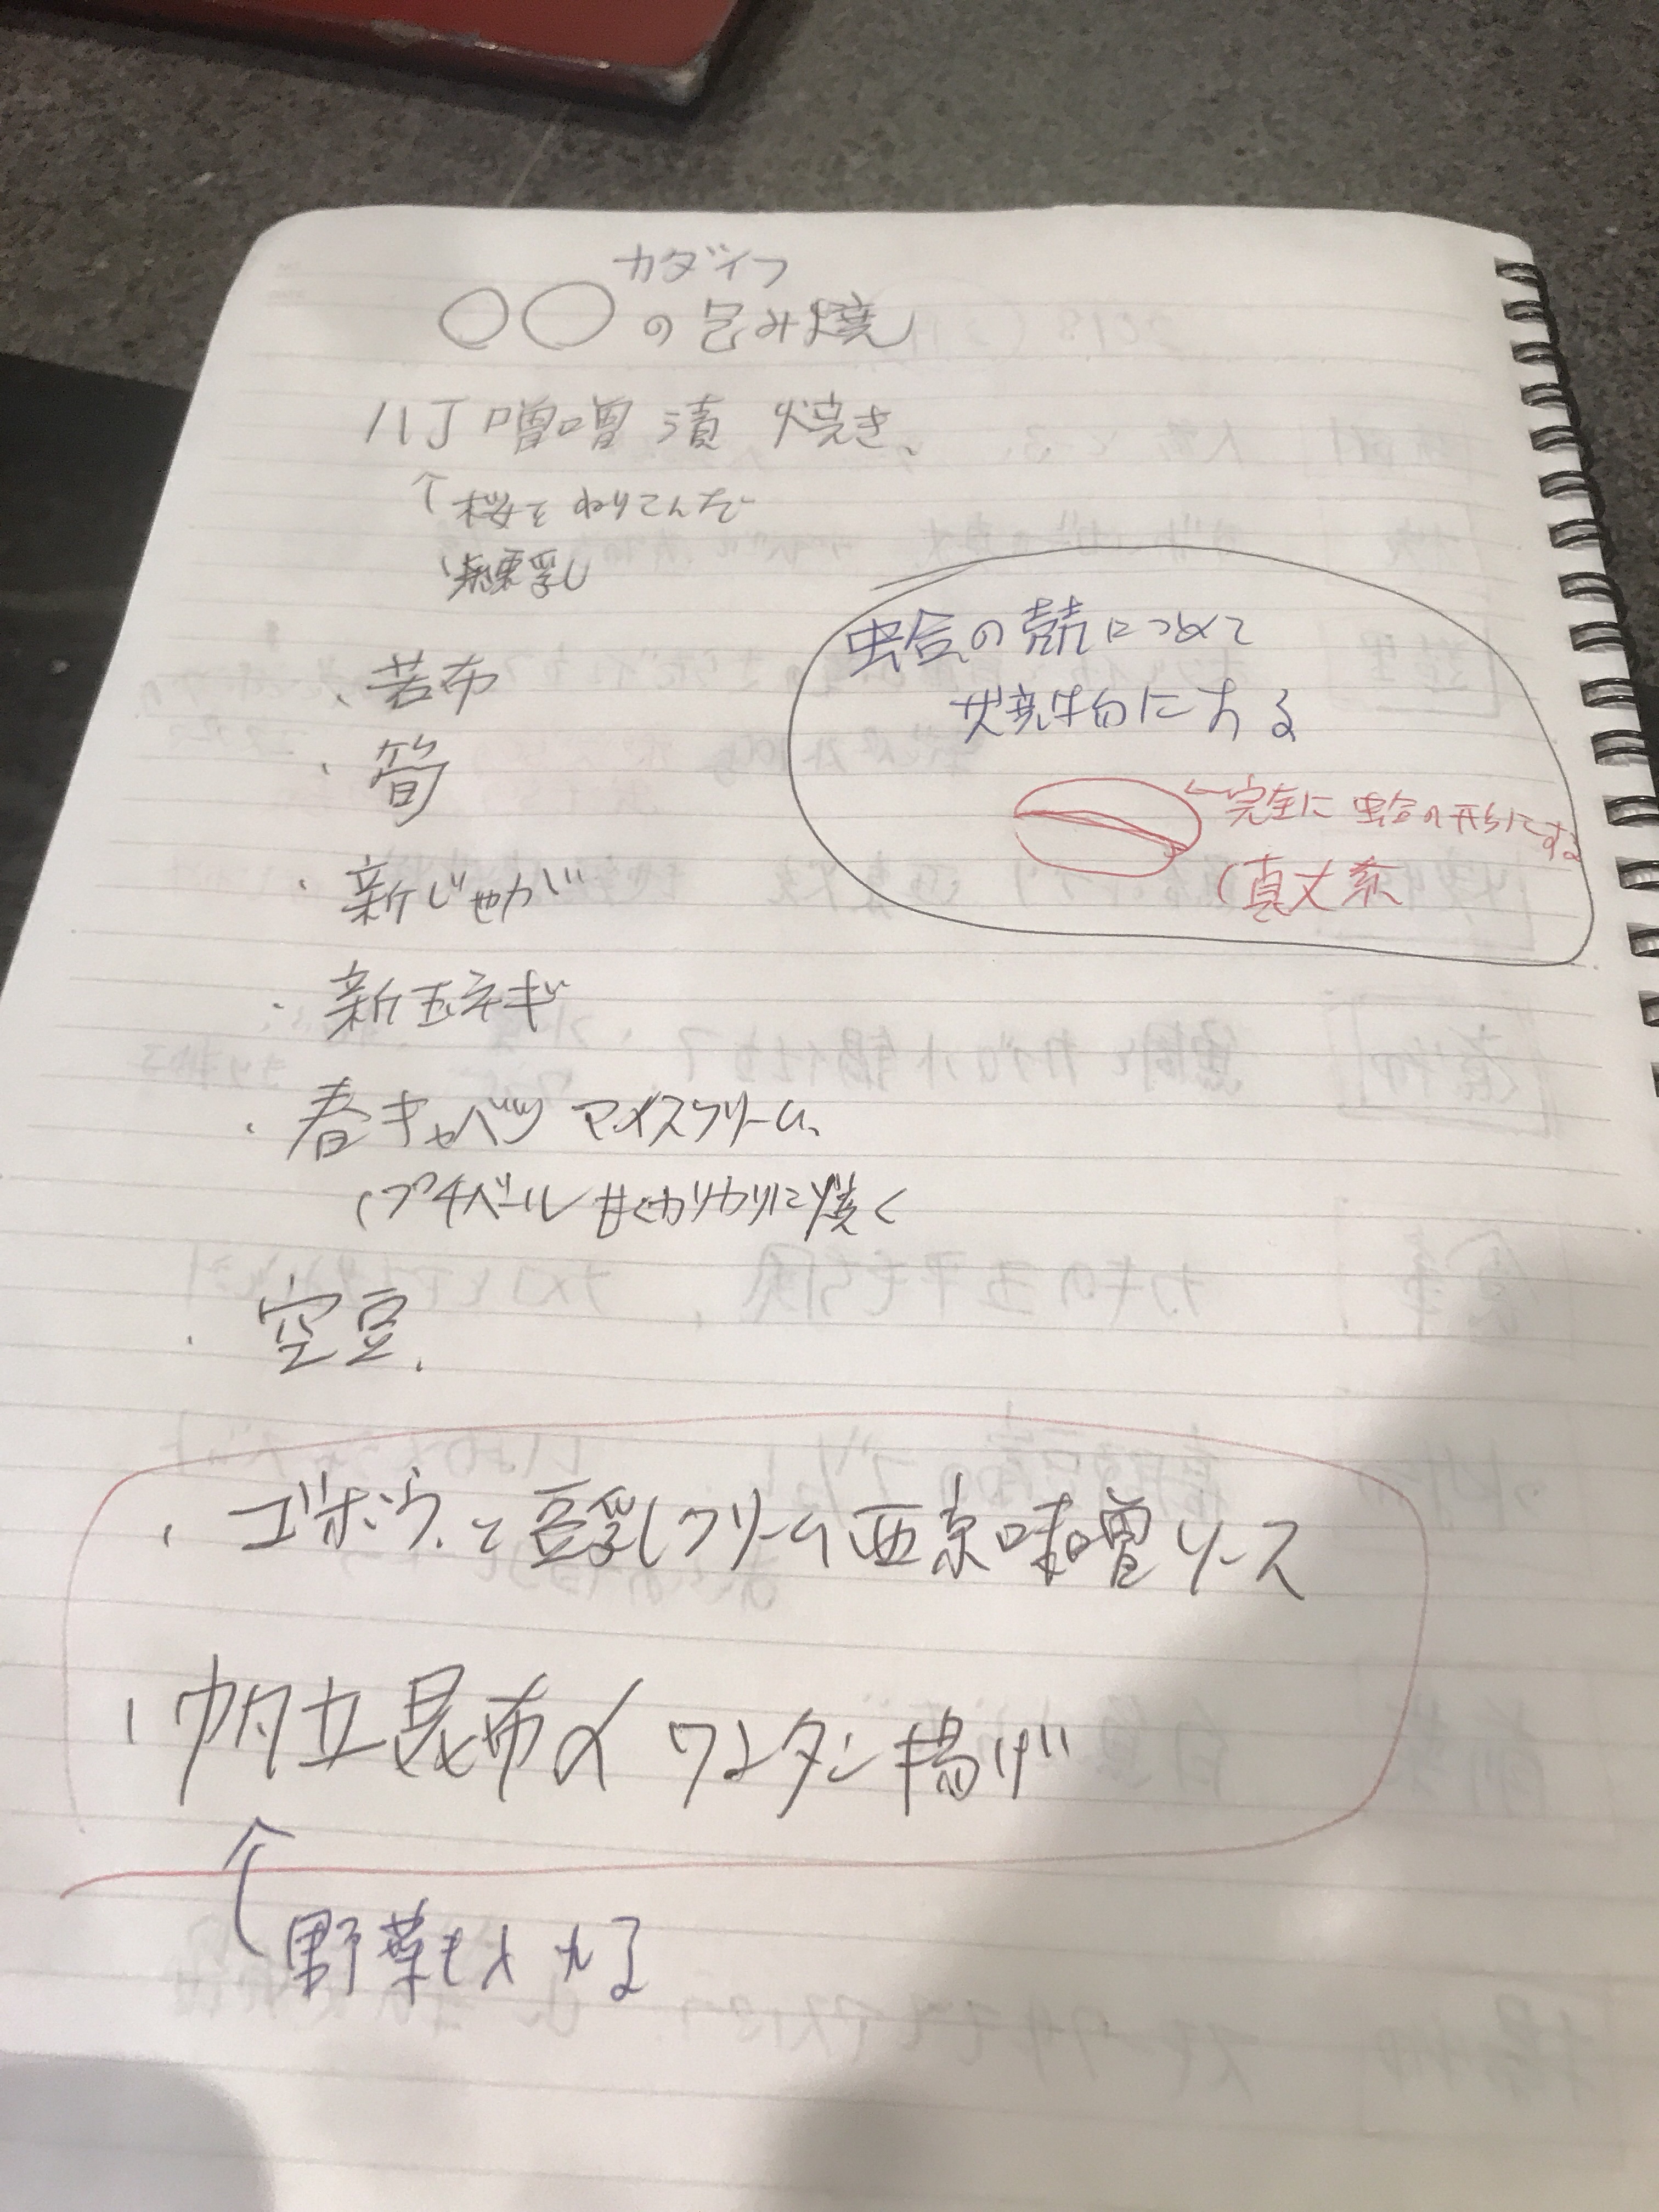 カダイフ
〇〇の包み焼
八丁噌噌漬 焼き、
↑桜を ねりこんだ
練乳
・若布
・筍
・新じゃが
・新玉ネギ
・春キャベツ アイスクリーム、
(プチベール 甘くカリカリに焼く
・空豆、
蛤の殻につめて
焼物にする
←完全に 蛤の形にする
(真丈系
・ゴボウと豆乳クリーム西京味噌ソース
・帆立昆布〆 ワンタン揚げ
野菜も入れる